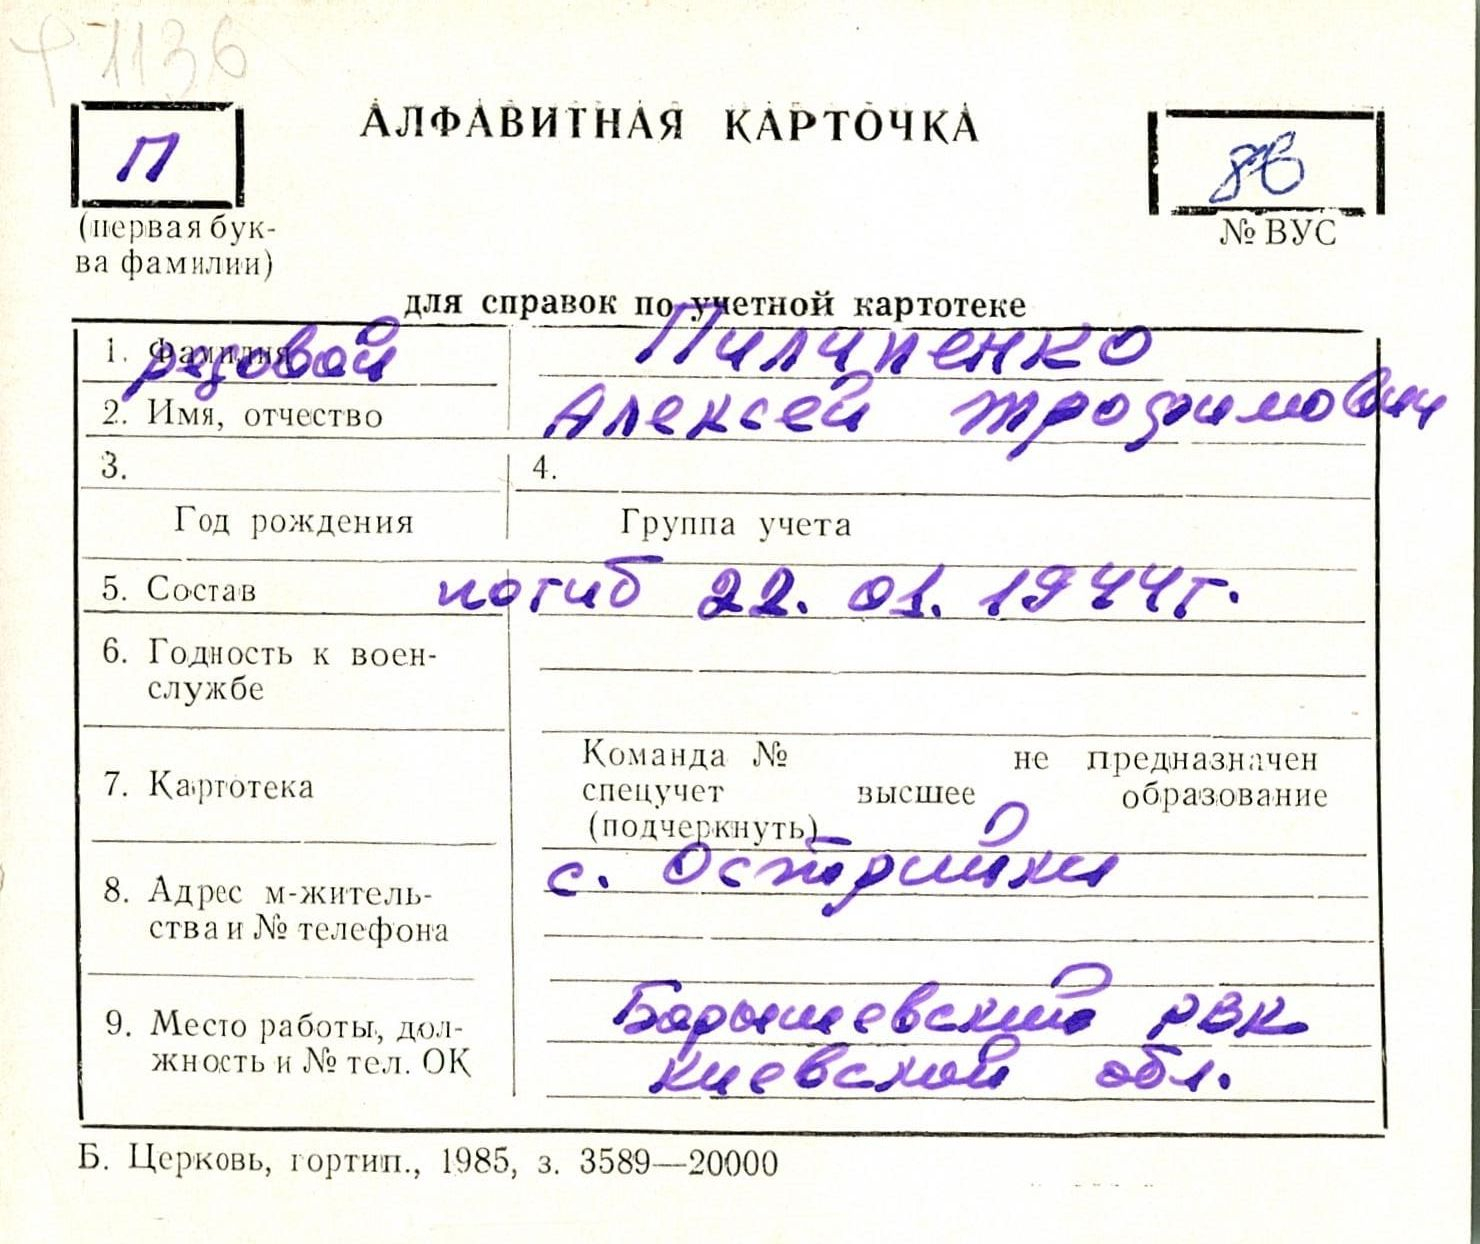 1136
АЛФАВИТНАЯ КАРТОЧКА
П
(первая бук-
ва фамилии)
№ ВУС
для справок по учетной картотеке
1. Фамилия
рядовой
Пилипенко
2. Имя, отчество
Алексей Трофимович
3.
4.
Год рождения
Группа учета
5. Состав
погиб 22.01.1944г.
6. Годность к воен-
службе
7. Картотека
Команда № не предназначен
спецучет высшее образование
(подчеркнуть)
8. Адрес м-житель-
ства и № телефона
с. Острийки
9. Место работы, дол-
жность и № тел. ОК
Барышевский РВК
Киевской обл.
Б. Церковь, гортип., 1985, з. 3589—20000